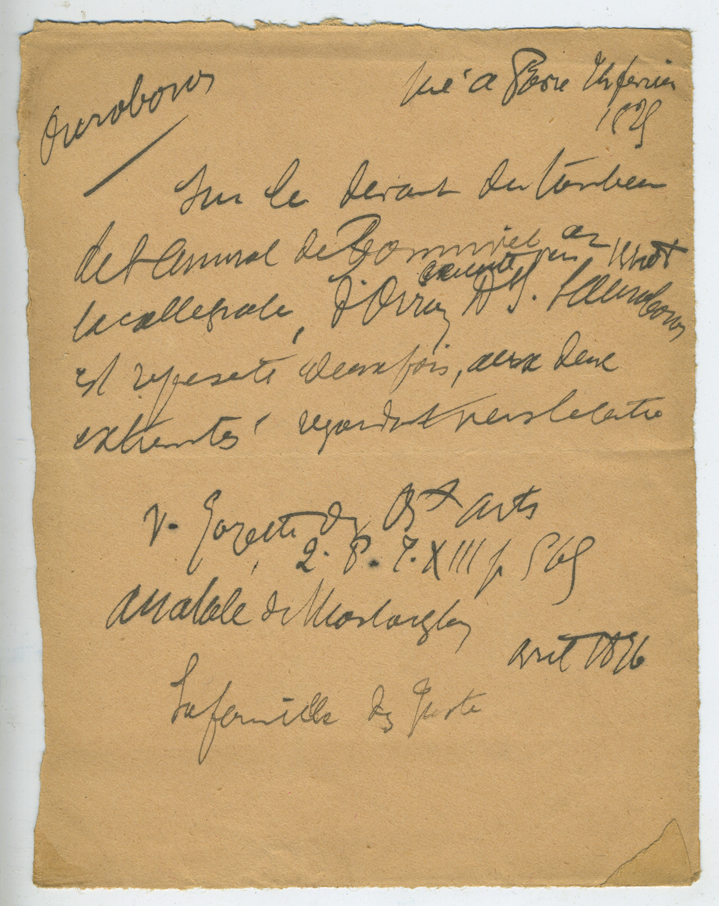 Ouroboros
né à Paris 24 février
1825
Sur le devant du tombeau
de l'amiral de Bonnivet
exécuté
la collégiale, d'Oiron, l'ouroboros
est représenté deux fois, aux deux
extremités regardant vers le centre
V. Gazette des Bx arts
2. P. T. XIII p. 569
Anatole de Montaiglon
avril 1876
La famille des Juste